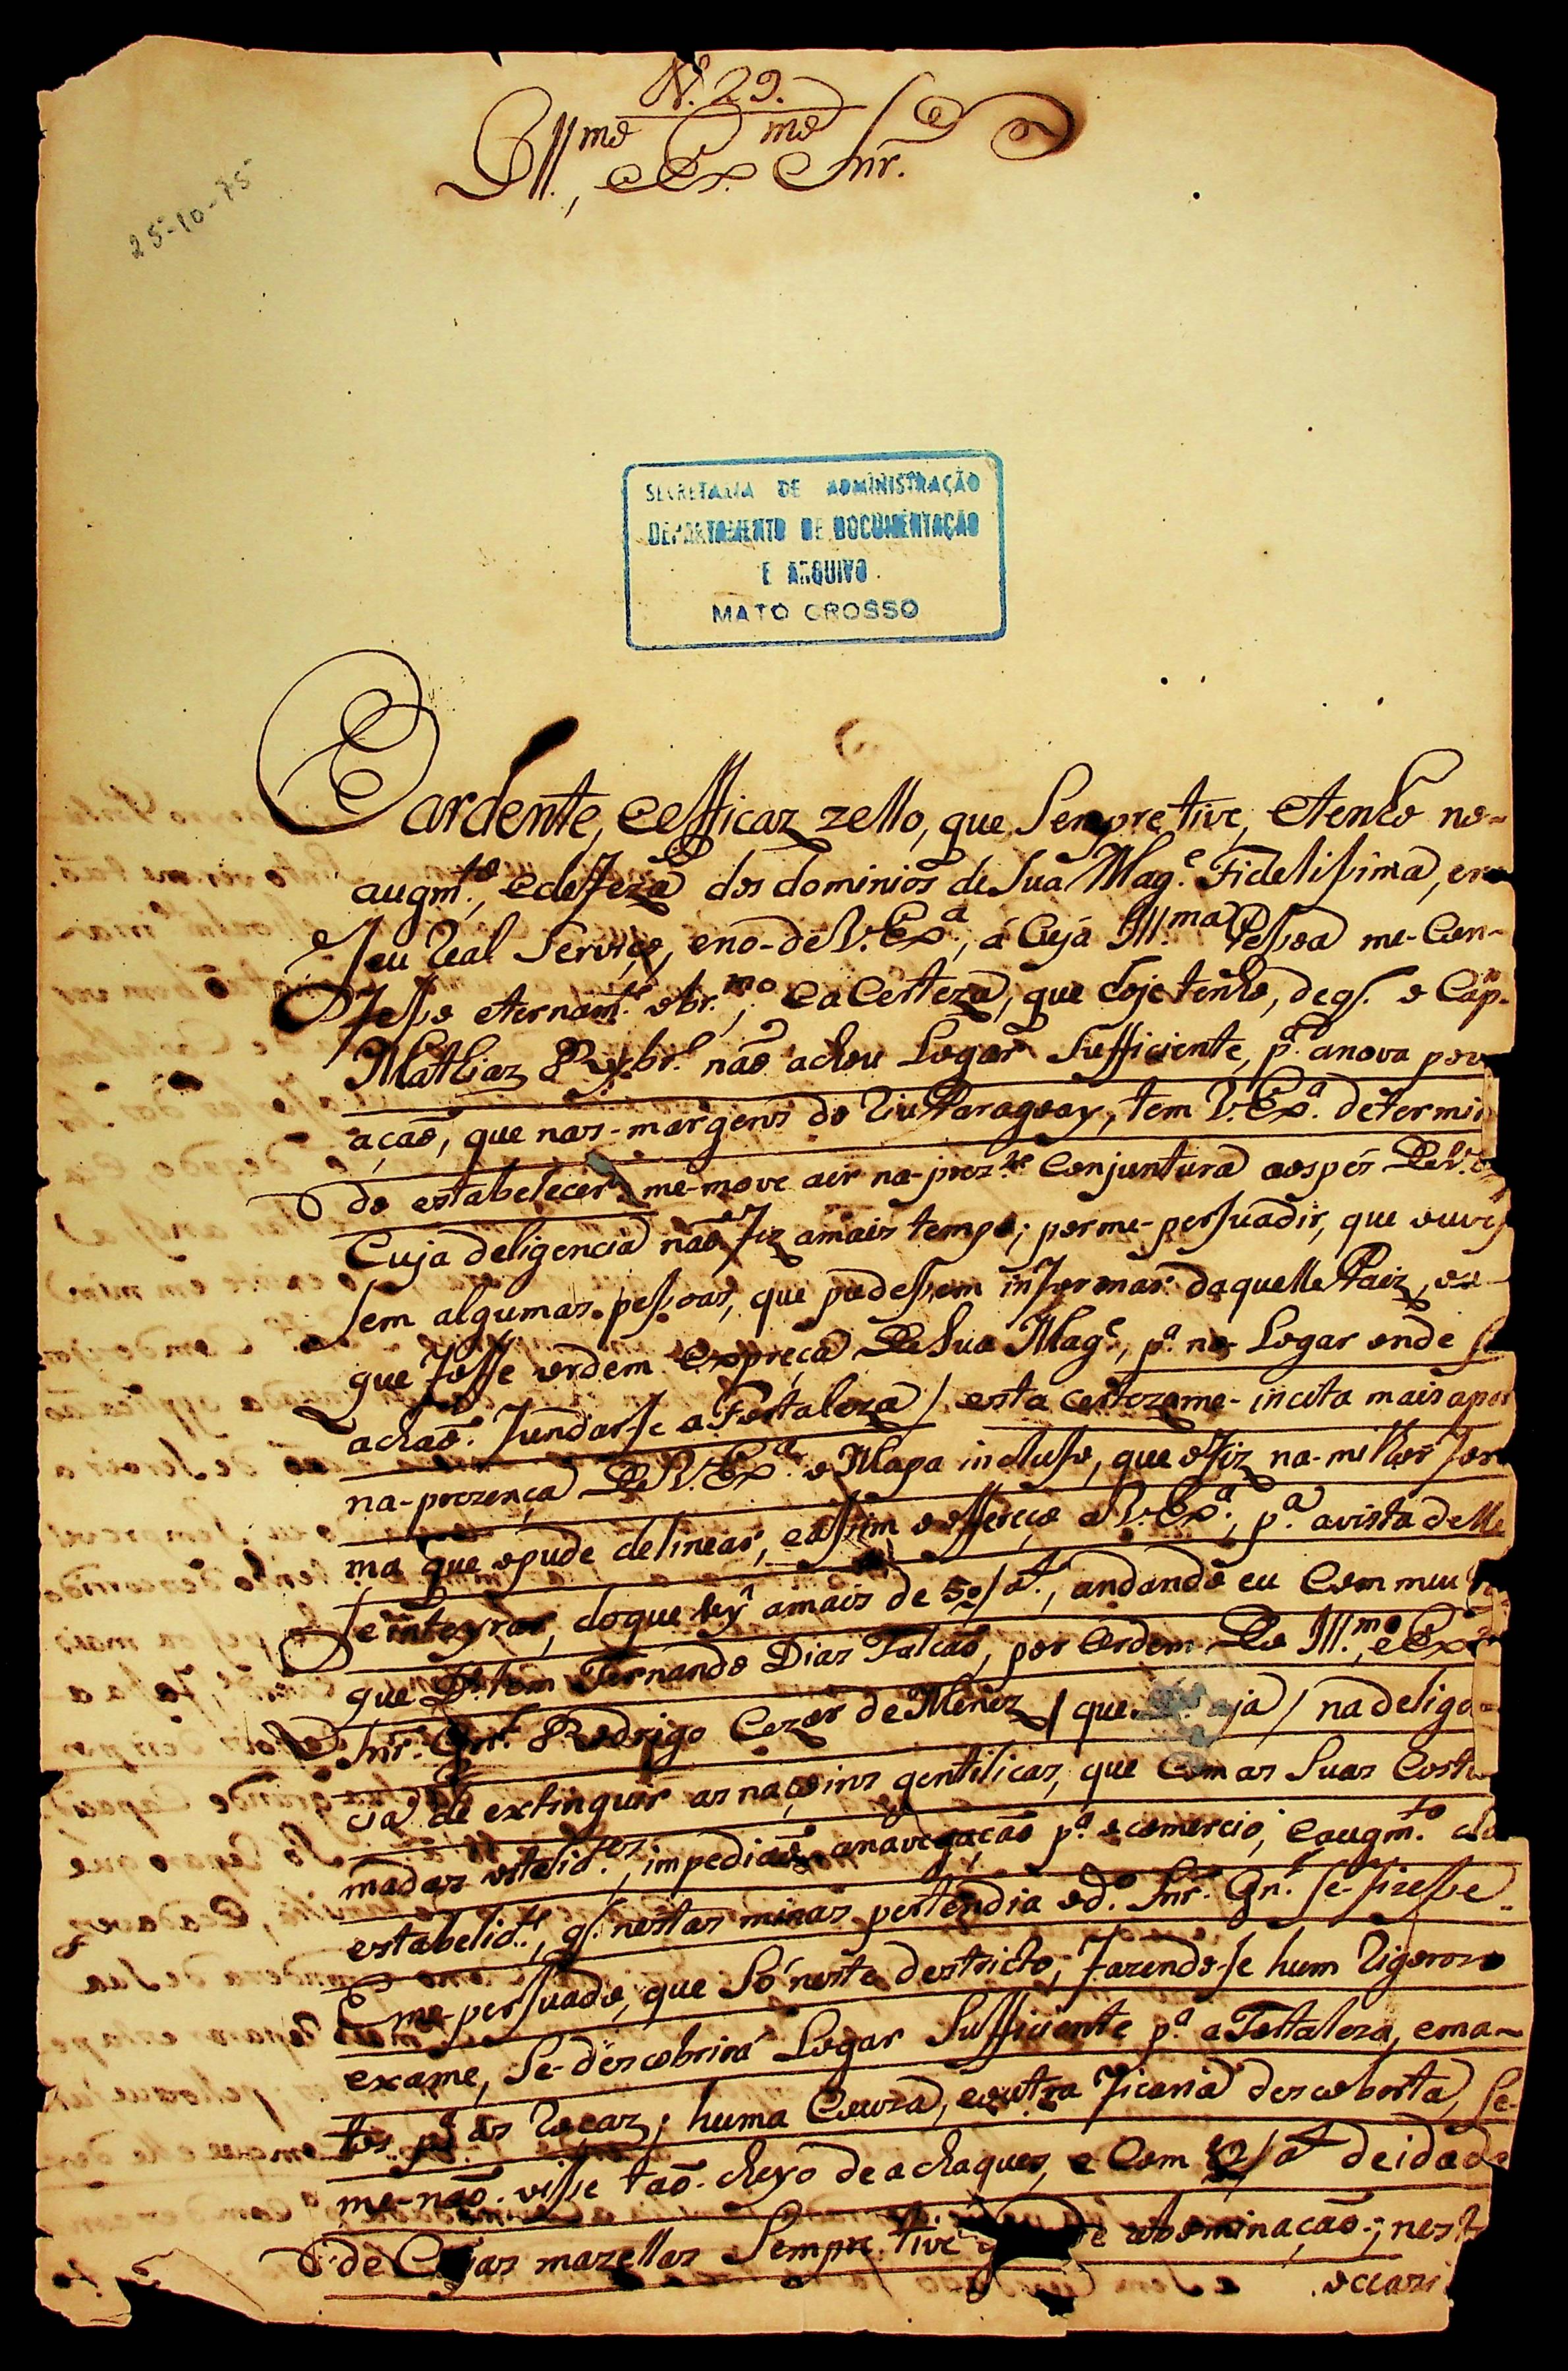 N. 29.
Ill.mo e Ex.mo Snr.
25-10-75
SECRETARIA DE ADMINISTRAÇÃO
DEPARTAMENTO DE DOCUMENTAÇÃO
E ARQUIVO
MATO GROSSO
O ardente, e efficaz zello, que Sempre tive, e tenho no-
augm.to, e defeza dos dominios de Sua Mag.e Fidelisima, em
o seu Real Serviço, e no-de V. Ex.a, á Cuja Ill.ma Pessoa me-Con-
feso eternam.te obr.mo, e a Certeza, que hoje tenho, de q. o Cap.m
Mathiaz Rybr.o não achou Logar Sufficiente, p.a a nova povo
ação, que nas-margens do Rio Paraguay, tem V. Ex.a determin
do estabelecer, me-move a ir na-prez.te Conjuntura aos pés De V.
Cuja deligencia não fiz a mais tempo; por me-persuadir, que ouves
sem algumas pessoas, que pudessem informar daquelle Paiz, ou
que fosse ordem expreça De Sua Mag.e, p.a no Logar onde se
achão fundarse a Fortaleza / esta certeza me-incita mais a por
na-prezença De V. Ex.a o Mapa incluso, que o fiz na-milhor for
ma que o pude delinear, e assim o offereço a V. Ex.a, p.a a vista delle
se inteyrar, do que vy a mais de 50/a.s, andando eu Com meu
que D.s tem Fernando Dias Falcão, por Ordem Do Ill.mo e Ex
Snr. Gn.l Rodrigo Cezar de Menez / que haja / na delige
cia de extinguir as naçoins gentilicas, que Com as Suas Costu
madas ostelid.es, impedião a navegação p.a o comercio, e augm.to do
estabelid.to, q. nestas minas pertendia o d.o Snr. Gn.l se-fizesse.
E me-persuado, que Só neste destricto, fazendo-se hum Rigorozo
exame, Se-descobrirá Logar Sufficiente p.a a Fortaleza, e ma-
tos p.a as Roças; huma Couza, e outra ficaria descoberta, Se-
me-não-visse tão-cheyo de achaques, e Com /a.s de idade
de Cujas mazellas Sempre tive abominação; nest
occazi